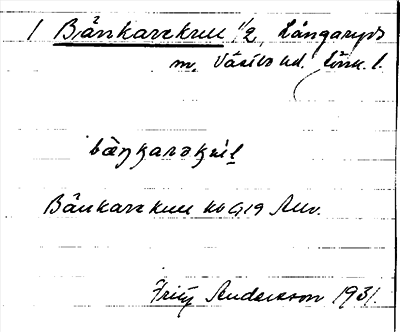 1 Bänkarekull 1/2, Långaryds
m, Västbo hd. Jönk. l.
bäŋkarəkul
Bänkarekull HbG19 Allv.
Fritz Andersson 1931.